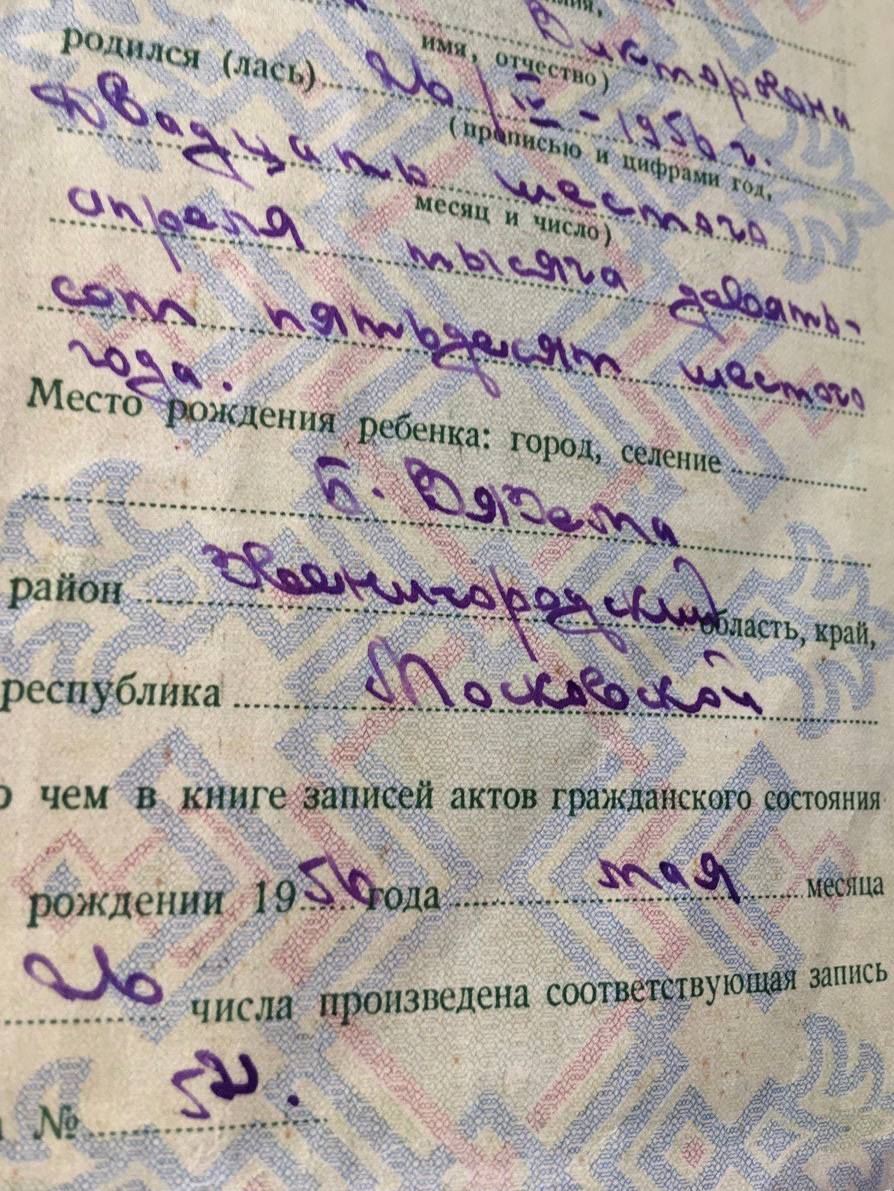 Викторовна
имя, отчество)
родился (лась) 26/IV-1956 г.
(прописью и цифрами год,
Двадцать шестого
месяц и число)
апреля тысяча девять-
сот пятьдесят шестого
года.
Место рождения ребенка: город, селение
Б. Вяземы
район Звенигородский область, край,
республика Московской
о чем в книге записей актов гражданского состояния
рождении 1956 года мая месяца
26 числа произведена соответствующая запись
№ 52.